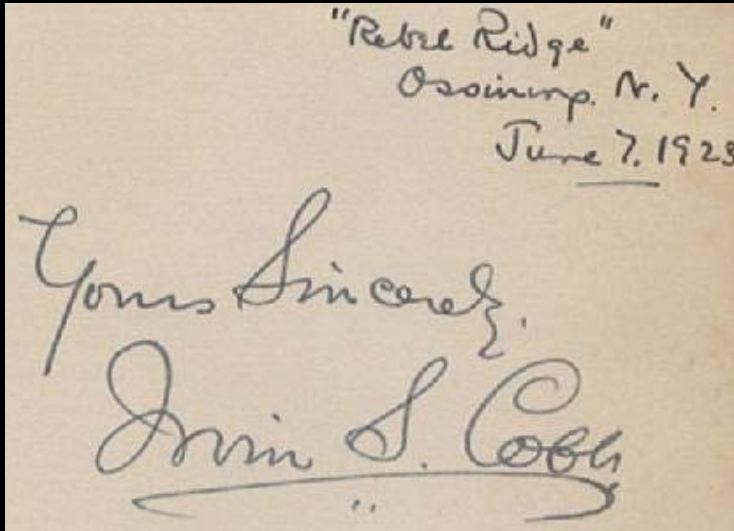 "Rebel Ridge"
Ossining. N. Y.
June 7. 1923
Yours Sincerely.
Irvin S. Cobb